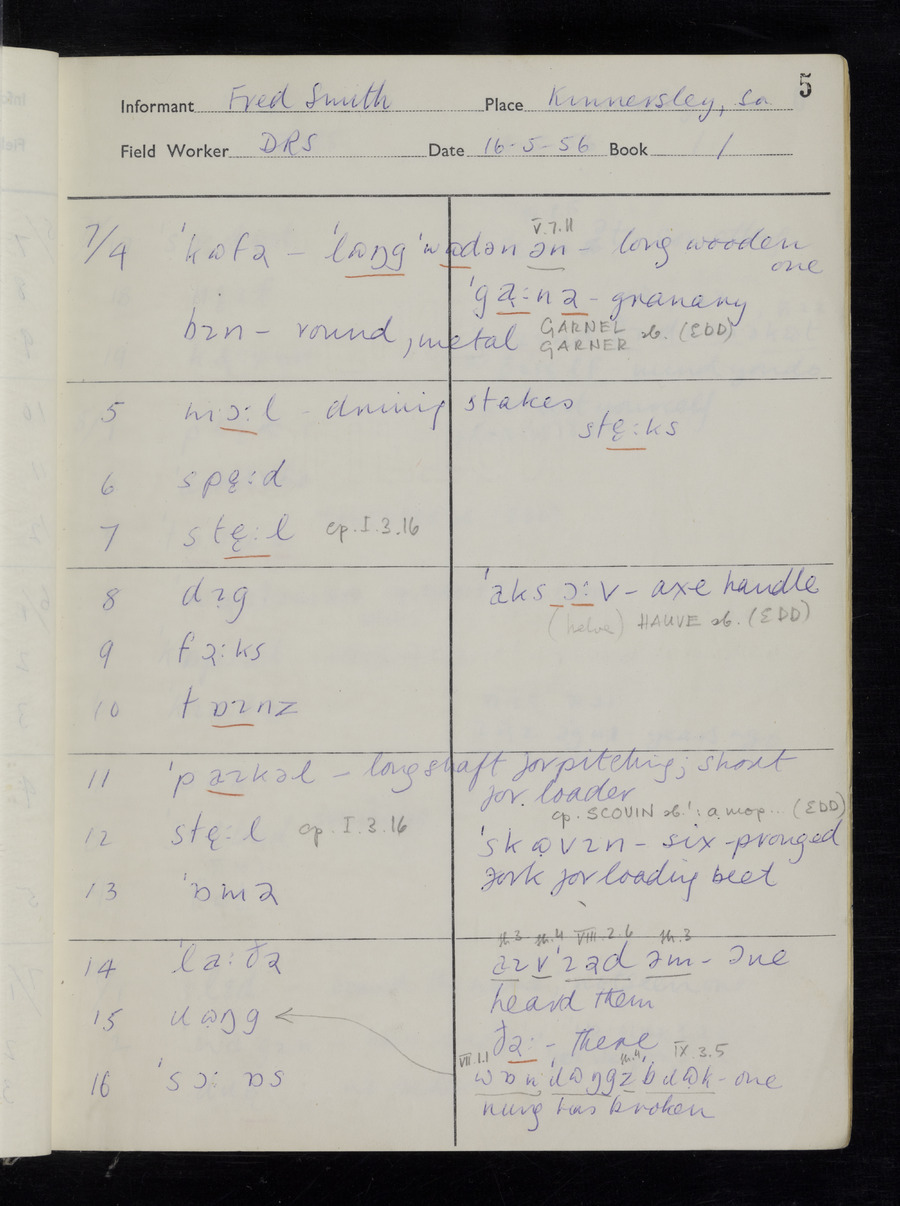 5
Informant Fred Smith Place Kinnersley, Sa
Field Worker DRS Date 16-5-56 Book 1
V.7.11
7/4 ˈkɒfə – ˈlɒŋgˈwʊdən ən – long wooden
one
ˈgaː:nə – granary
bɪn – round, metal GARNEL sb. (EDD)
GARNER
5 mɔ:l – driving stakes
stę:ks
6 spę:d
7 stę:l cp. I.3.16
8 dɪg ˈaks ɔ:v – axe handle
(helve) HAUVE sb. (EDD)
9 fɔ:ks
10 tɒɪnz
11 ˈpəɪkəl – long shaft for pitching; short
for loader
cp. SCOVIN sb¹: a mop... (EDD)
12 stę:l cp. I.3.16 ˈskʊvɪn – six-pronged
fork for loading beet
13 ˈɒmə
VIII.2.6
14 ˈla:ðə əɪ v ˈɪəd əm – I've
heard them
15 ɹʊŋg ðə: – there
VII.1.1 IX.3.5
16 ˈsɔ: ɒs wɒn ˈɹʊŋgz ˈbɹɒk – one
rung has broken